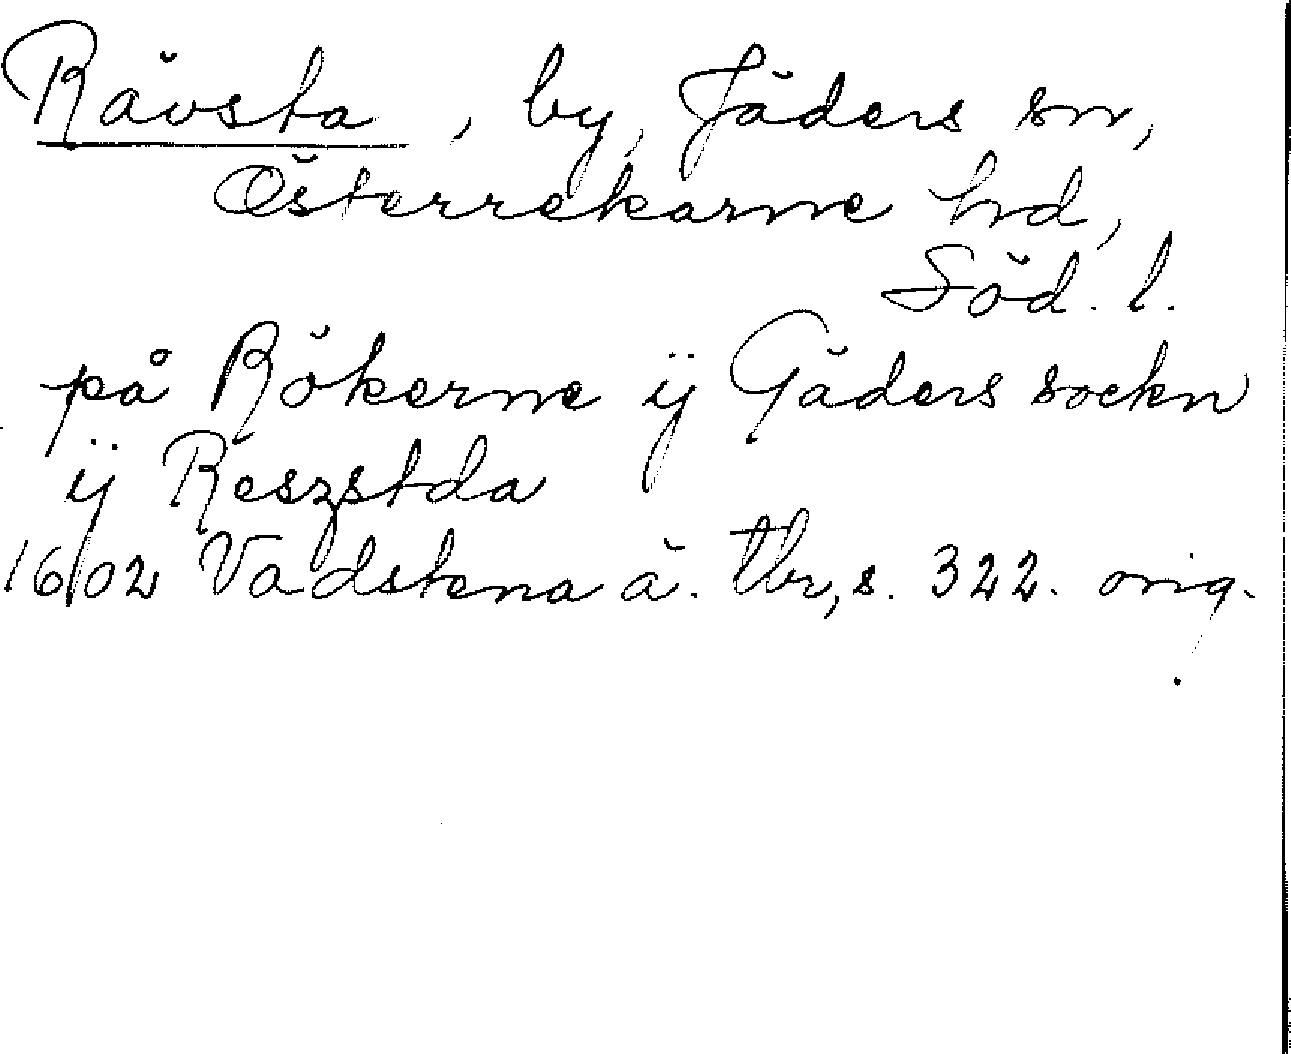 Rävsta, by, Jäders sn,
Österrekarne hrd,
Söd. l.
på Rökerne ÿ Gäders sockn
ÿ Reszstda
1602 Vadstena ä. tbr, s. 322. orig.